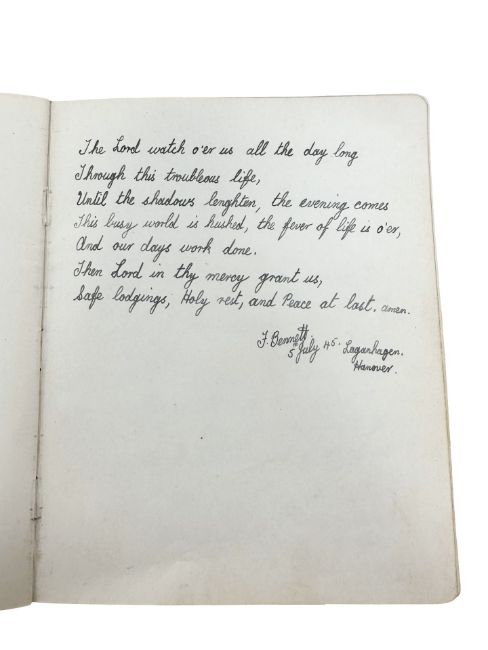 The Lord watch o'er us all the day long
Through this troubleous life,
Until the shadows lenghten, the evening comes
This busy world is hushed, the fever of life is o'er,
And our days work done.
Then Lord in thy mercy grant us,
Safe lodgings, Holy rest, and Peace at last. amen.
F. Bennett.
5th July 45. Laganhagen.
Hanover.